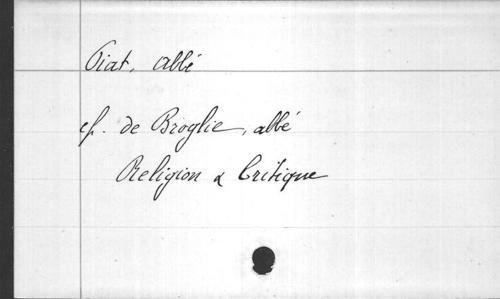 Piat, abbé
cf. de Broglie, abbé
Religion & Critique